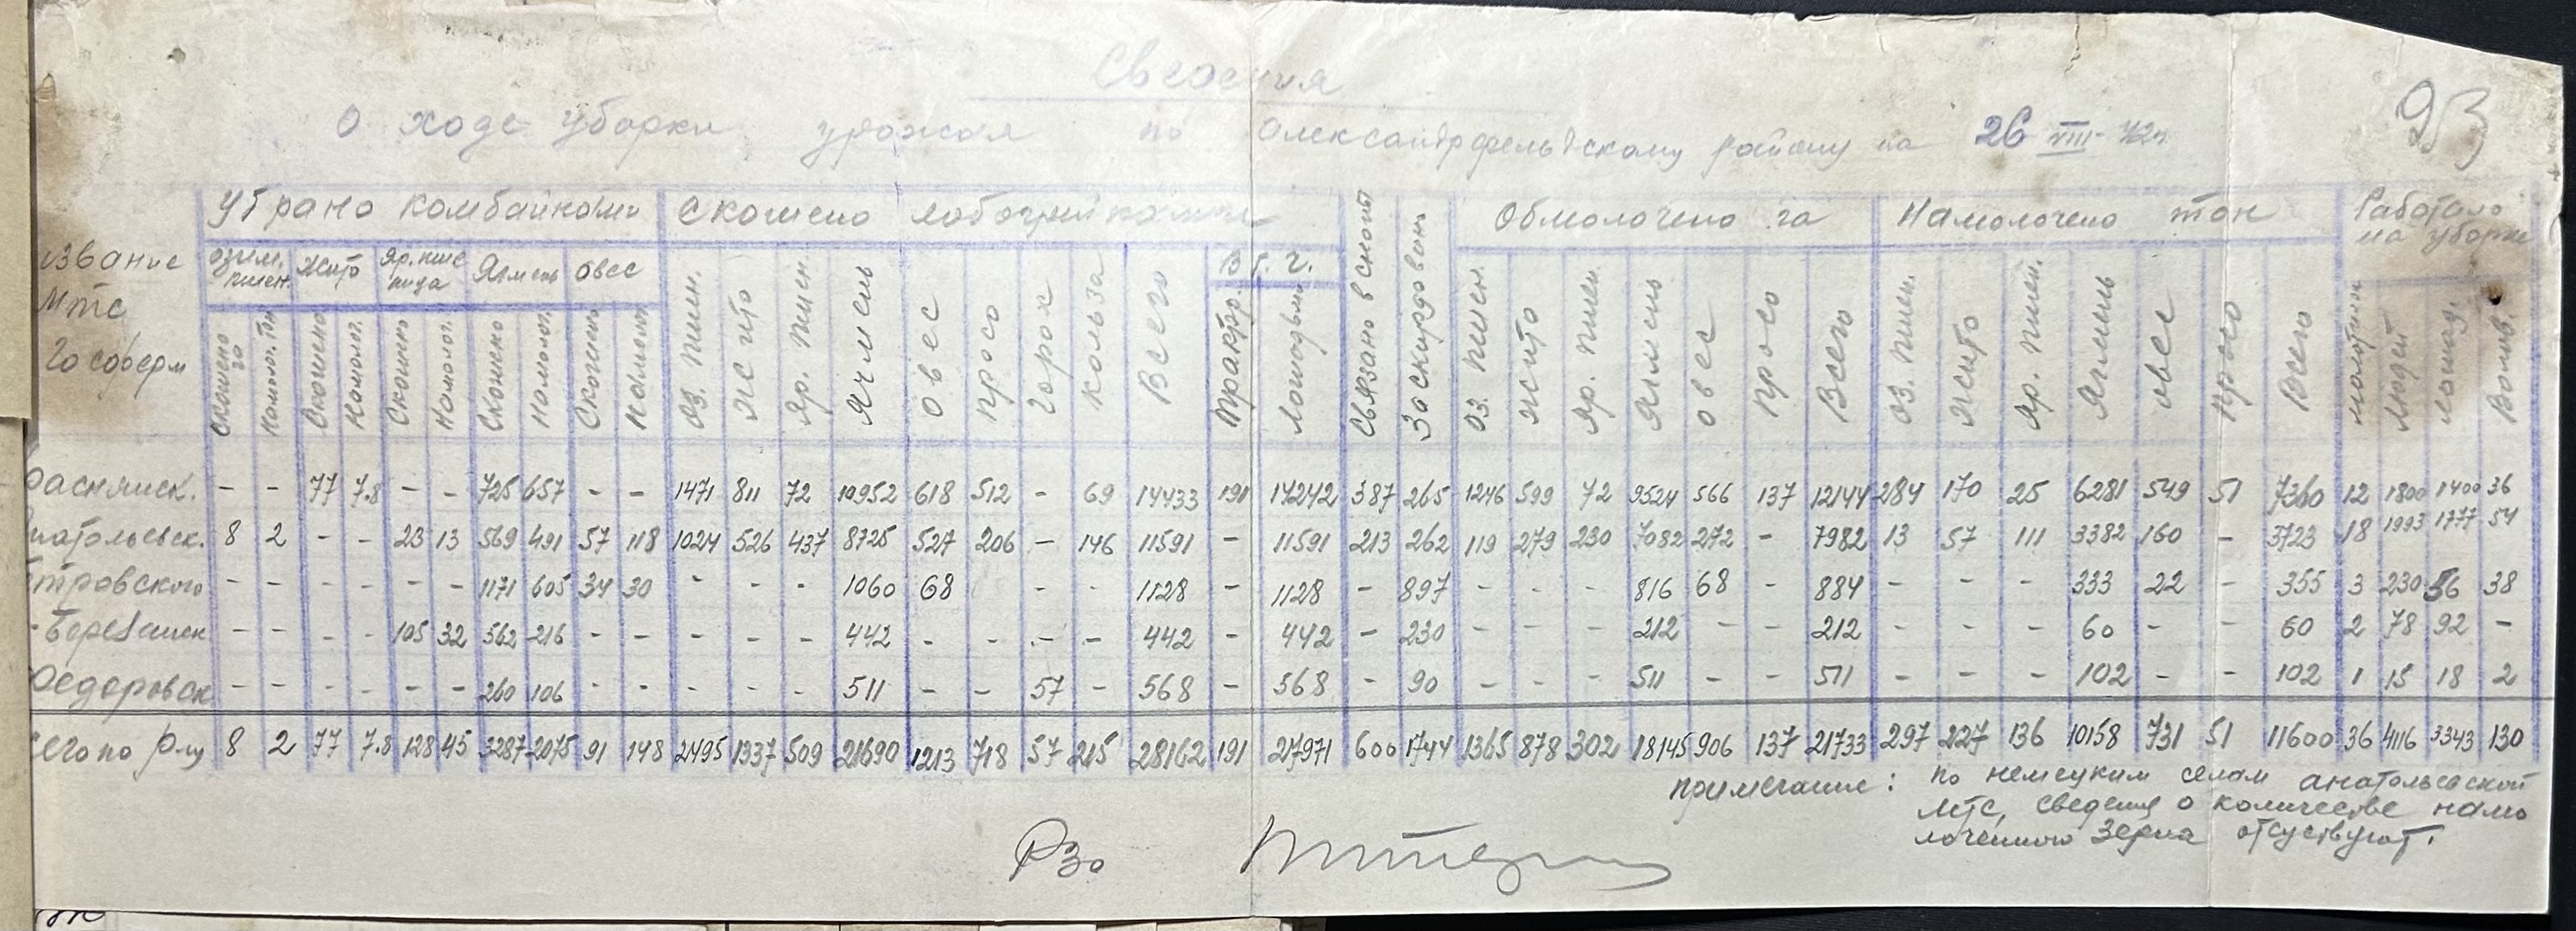 93
Сведения
О ходе уборки урожая по Александрфельдскому району на 26 VIII-42г.
Убрано комбайнами | Скошено лобогрейками | Связано в снопы | Заскирдовано | Обмолочено га | Намолочено тон | Работало на уборке
азвание
МТС
Госферм
озим. пшен. | Жито | Яр. пшеница | Ячмень | Овес | В т. ч.
Скошено га | Намолот. тон | Скошено | Намолот. | Скошено | Намолот. | Скошено | Намолот. | Скошено | Намолот. | Оз. пшен. | Жито | Яр. пшен. | Ячмень | Овес | Просо | Горох | Кользa | Всего | Трактор. | Лошадьми | Оз. пшен. | Жито | Яр. пшен. | Ячмень | Овес | Просо | Всего | Оз. пшен. | Жито | Яр. пшен. | Ячмень | Овес | Просо | Всего | молотилк | Людей | Лошад. | Волов.
раснянск. | - | - | 77 | 7.8 | - | - | 725 | 657 | - | - | 1471 | 811 | 72 | 10952 | 618 | 512 | - | 69 | 14433 | 191 | 14242 | 387 | 265 | 1246 | 599 | 72 | 9524 | 566 | 137 | 12144 | 284 | 170 | 25 | 6281 | 549 | 51 | 7360 | 12 | 1800 | 1400 | 36
натольевск. | 8 | 2 | - | - | 23 | 13 | 569 | 491 | 57 | 118 | 1024 | 526 | 437 | 8725 | 527 | 206 | - | 146 | 11591 | - | 11591 | 213 | 262 | 119 | 279 | 230 | 7082 | 272 | - | 7982 | 13 | 57 | 111 | 3382 | 160 | - | 3723 | 18 | 1993 | 1777 | 54
тровского | - | - | - | - | - | - | 1171 | 605 | 34 | 30 | - | - | - | 1060 | 68 | - | - | 1128 | - | 1128 | - | 897 | - | - | - | 816 | 68 | - | 884 | - | - | - | 333 | 22 | - | 355 | 3 | 230 | 56 | 38
-Березанск | - | - | - | - | 105 | 32 | 562 | 216 | - | - | - | - | - | 442 | - | - | - | - | 442 | - | 442 | - | 230 | - | - | - | 212 | - | - | 212 | - | - | - | 60 | - | - | 60 | 2 | 78 | 92 | -
Федоровск | - | - | - | - | - | - | 260 | 106 | - | - | - | - | - | 511 | - | - | 57 | - | 568 | - | 568 | - | 90 | - | - | - | 511 | - | - | 511 | - | - | - | 102 | - | - | 102 | 1 | 15 | 18 | 2
сего по р-ну | 8 | 2 | 77 | 7.8 | 128 | 45 | 3287 | 2075 | 91 | 148 | 2495 | 1337 | 509 | 21690 | 1213 | 718 | 57 | 215 | 28162 | 191 | 27971 | 600 | 1744 | 1365 | 878 | 302 | 18145 | 906 | 137 | 21733 | 297 | 227 | 136 | 10158 | 731 | 51 | 11600 | 36 | 4116 | 3343 | 130
примечание: по немецким селам анатольевской
МТС, сведения о количестве намо
лоченного зерна отсуствуют.
РЗо